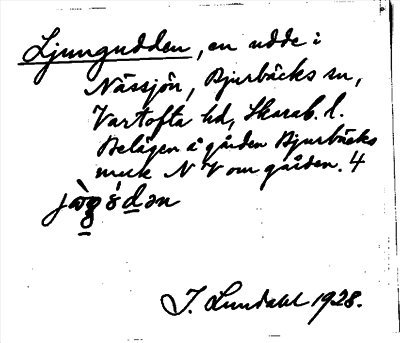 Ljungudden, en udde i
Nässjön, Bjurbäcks sn,
Vartofta hd, Skarab. l.
Belägen å gården Bjurbäcks
mark N V om gården. 4
J. Lundahl 1928.